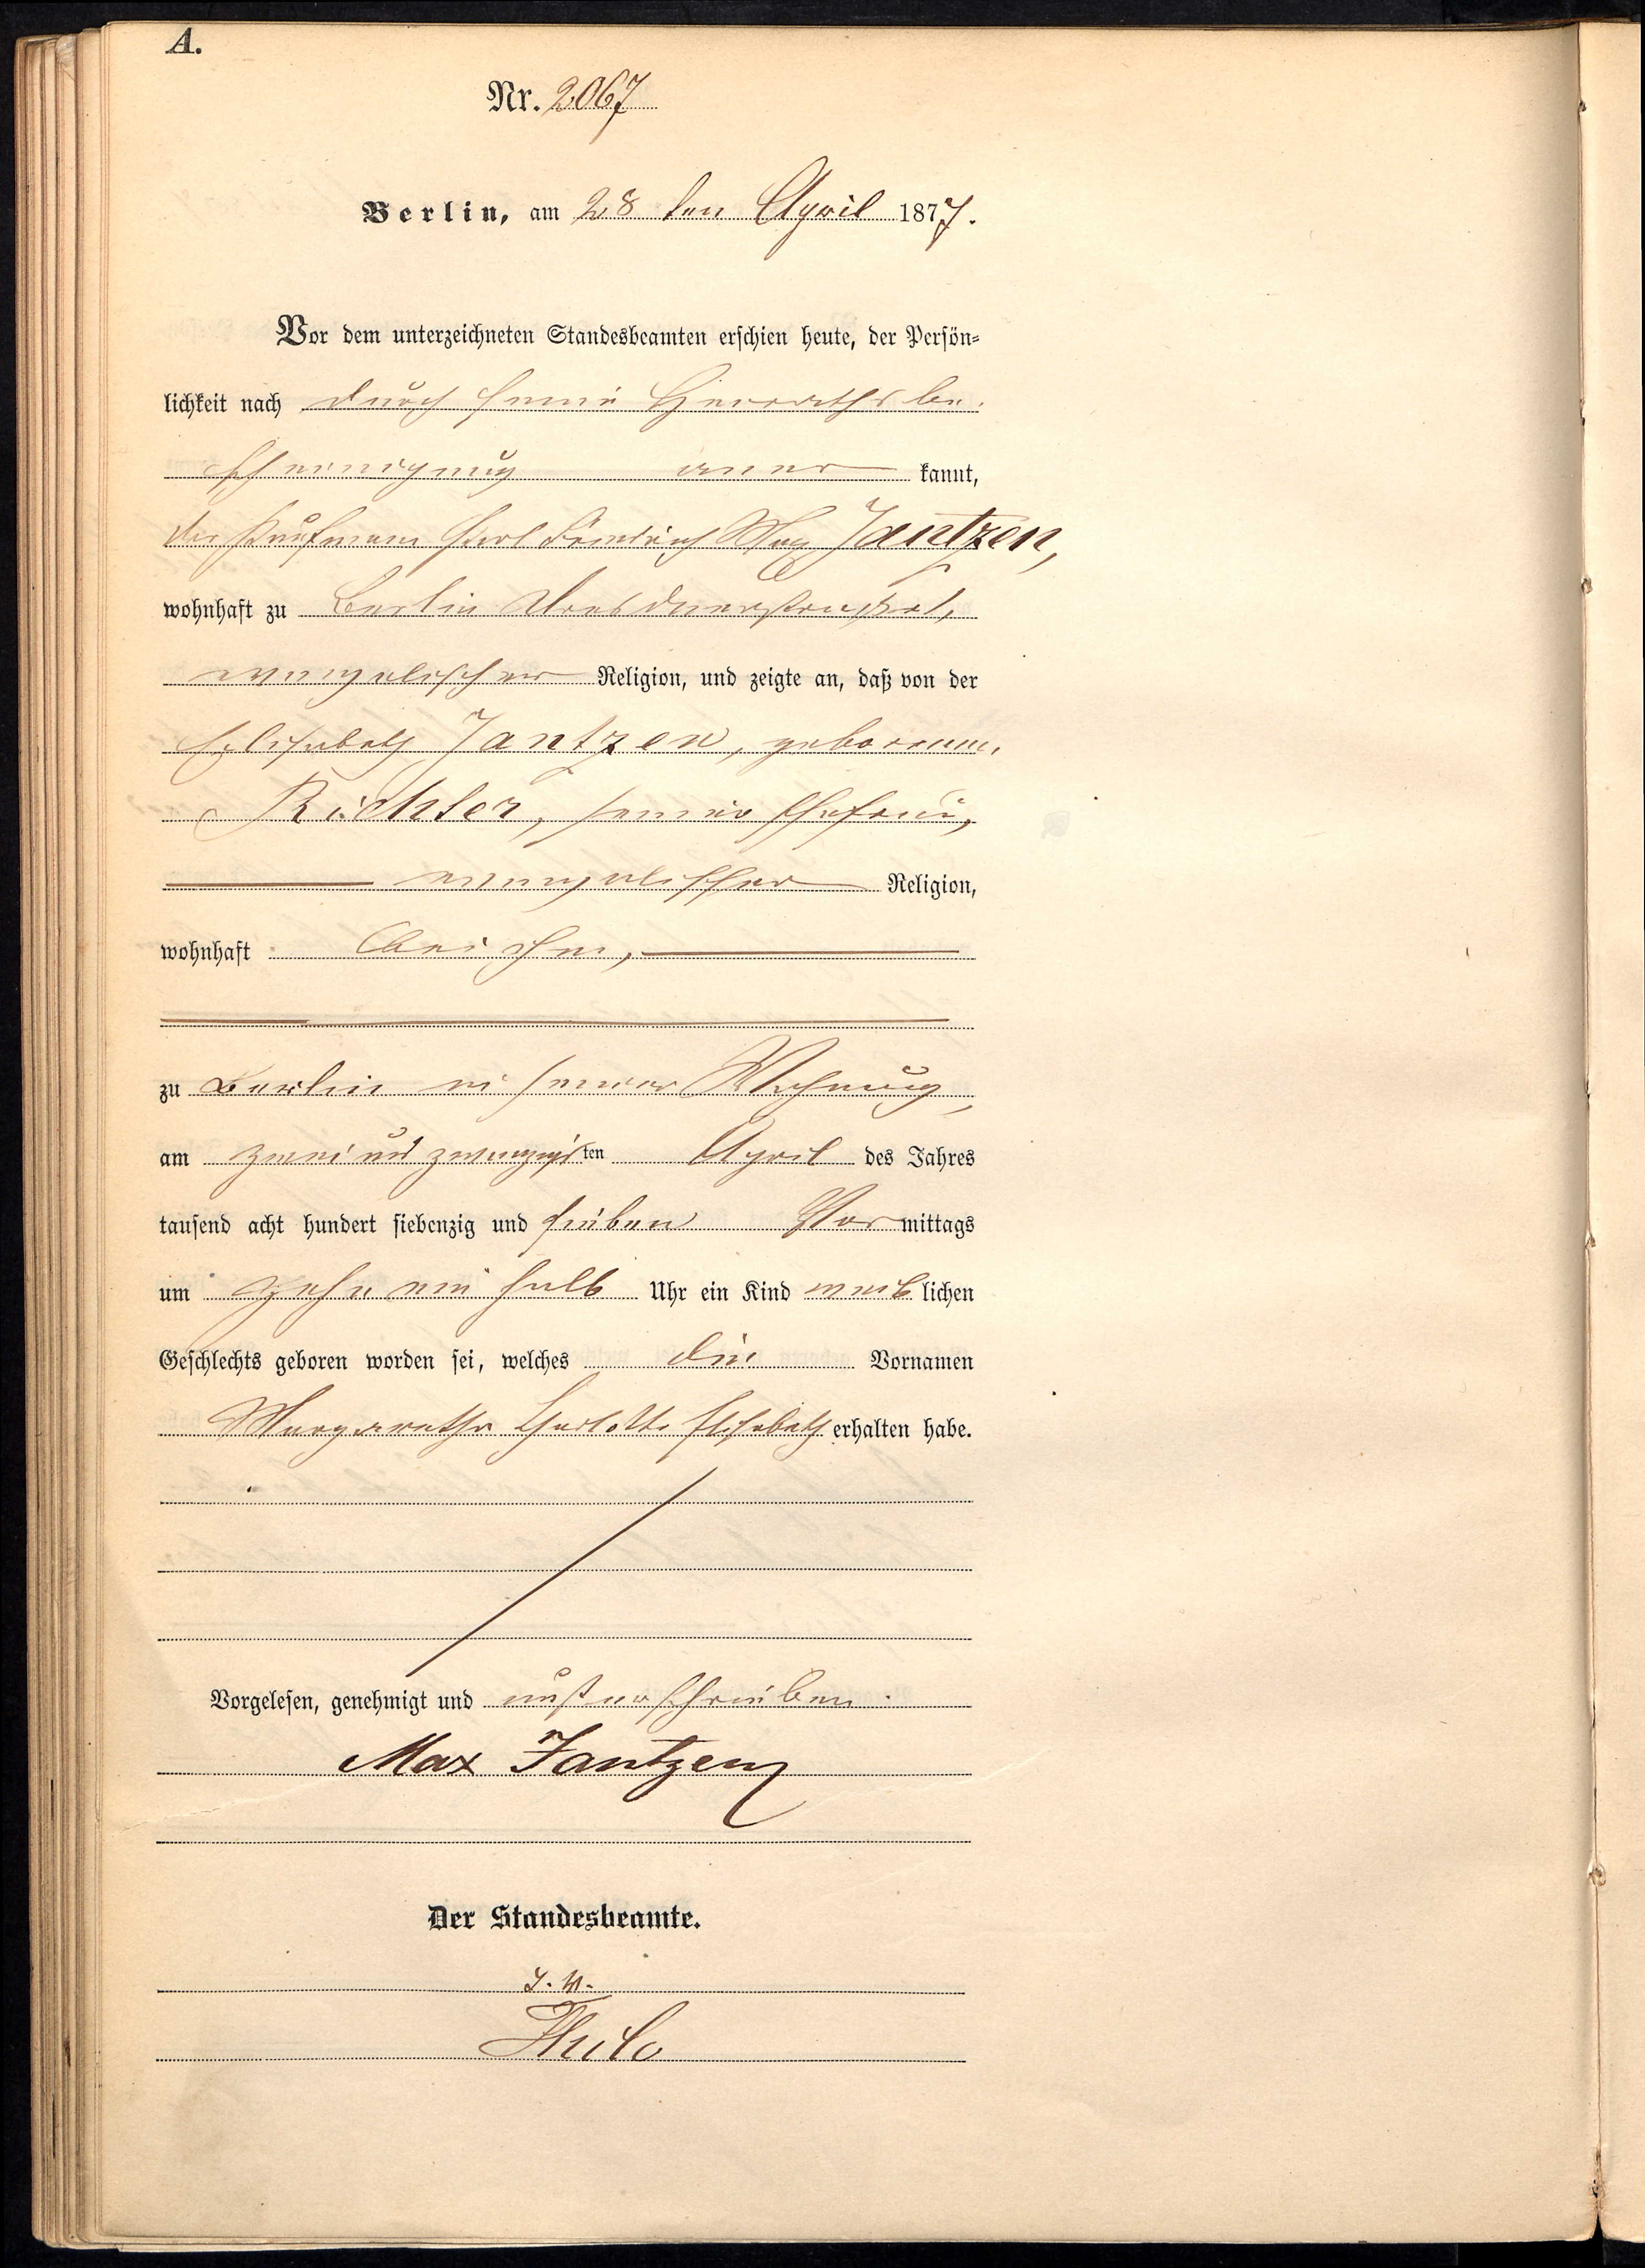 A.
Nr. 2067
Berlin, am 28 ten April 1877.
Vor dem unterzeichneten Standesbeamten erschien heute, der Persön=
lichkeit nach durch seine Heirathsbe-
scheinigung aner kannt,
der Kaufmann Carl Friedrich Max Jantzen,
wohnhaft zu Berlin Dresdnerstraße
evangelischer Religion, und zeigte an, daß von der
Elisabeth Jantzen, geborenen
Richter, seiner Ehefrau,
evangelischer Religion,
wohnhaft bei ihm,
zu Berlin in seiner Wohnung,
am zwei und zwanzigsten April des Jahres
tausend acht hundert siebenzig und sieben Vor mittags
um zehn ein halb Uhr ein Kind weib lichen
Geschlechts geboren worden sei, welches die Vornamen
Margarethe Charlotte Elisabeth erhalten habe.
Vorgelesen, genehmigt und unterschrieben.
Max Jantzen
Der Standesbeamte.
J. V.
Thilo